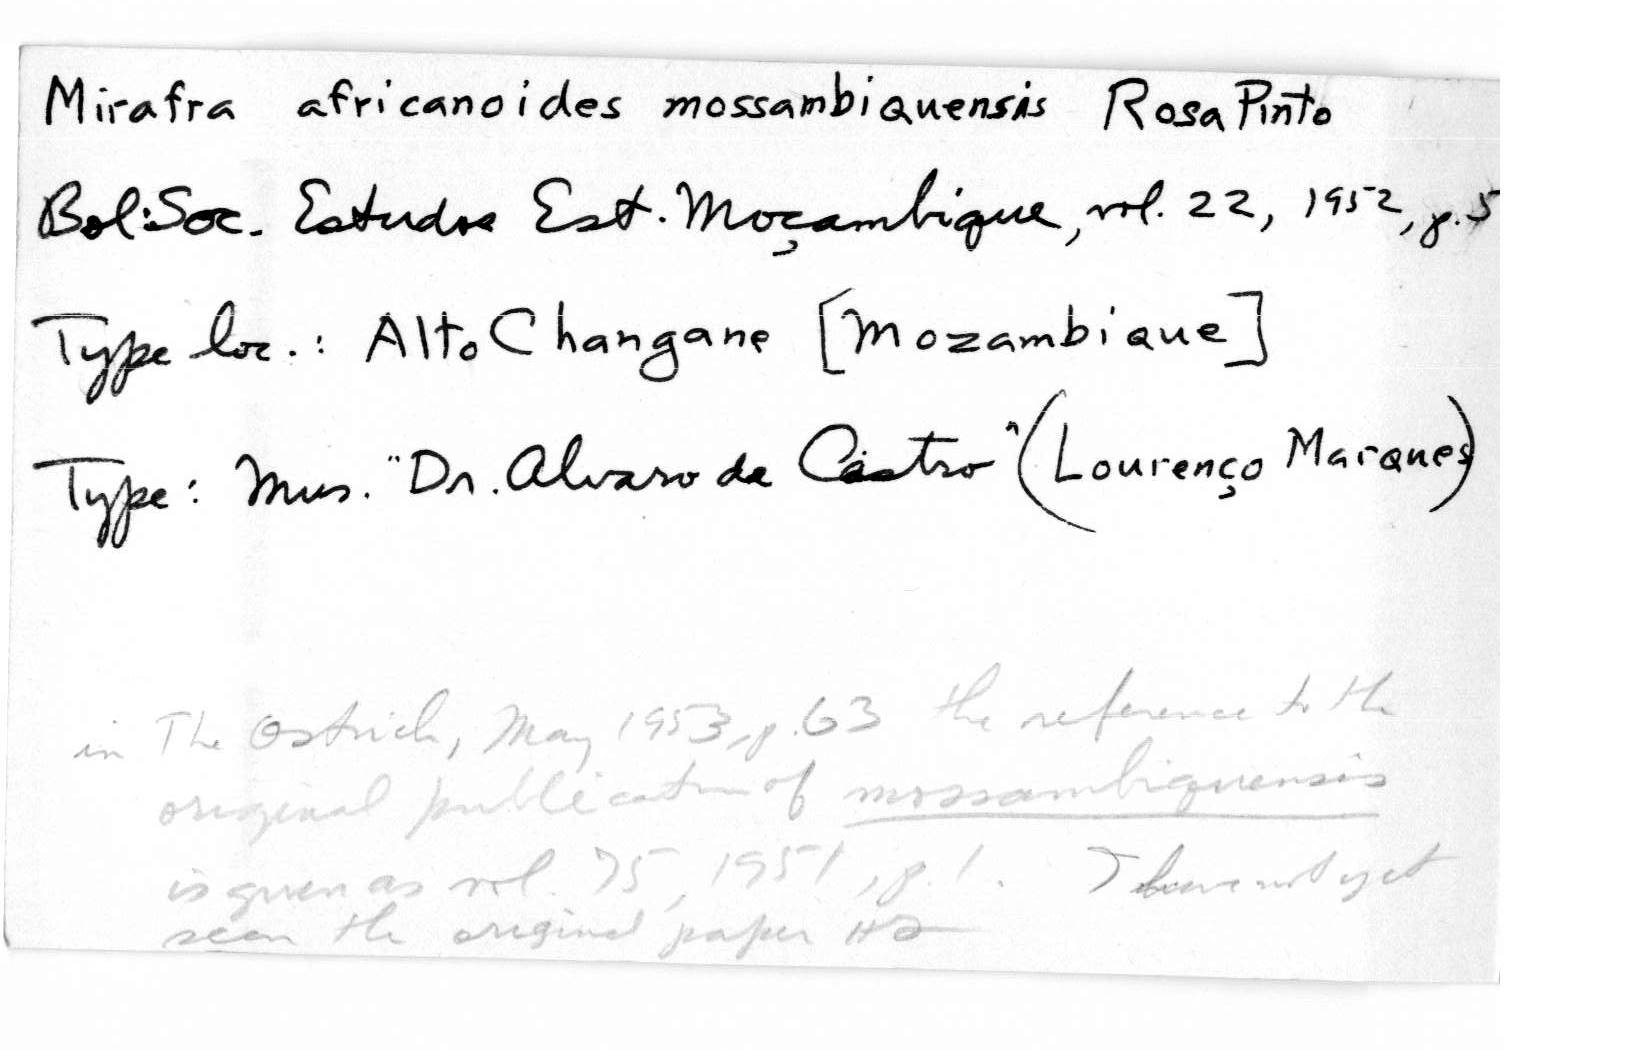 Mirafra africanoides mossambiquensis Rosa Pinto
Bol. Soc. Estudos Est. Moçambique, vol. 22, 1952, p. 5
Type loc.: Alto Changane [Mozambique]
Type: Mus. "Dr. Alvaro de Castro" (Lourenço Marques)
in The Ostrich, May 1953, p. 63 the reference to the
original publication of mossambiquensis
is given as vol. 75, 1951, p. 1. I have not yet
seen the original paper